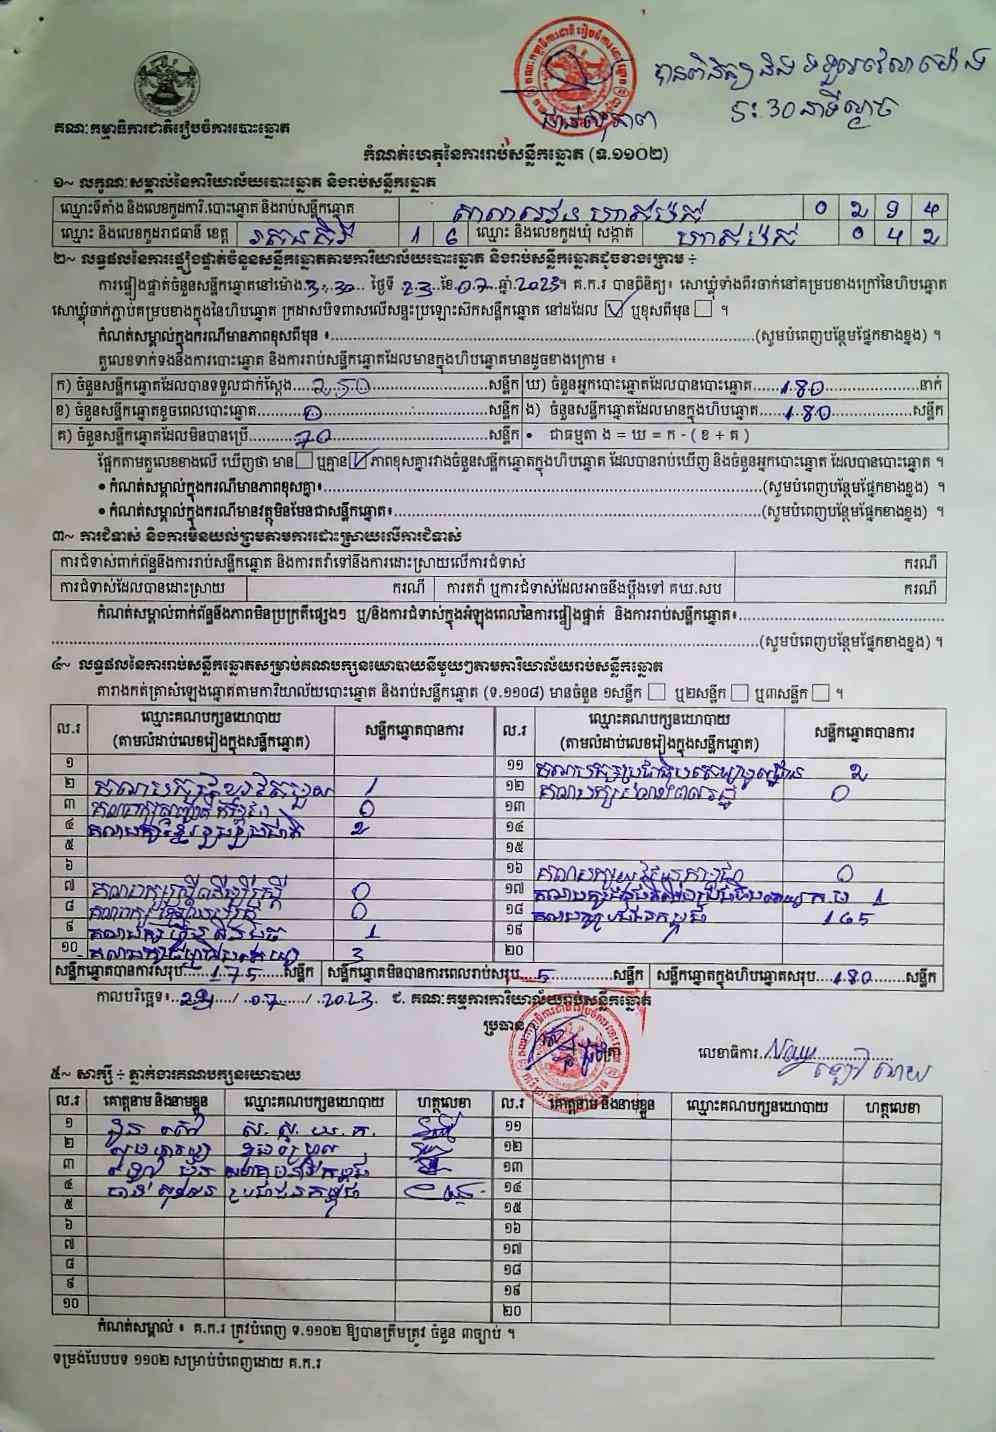 បានពិនិត្យ និង ទទួលវេលាម៉ោង
5:30 នាទីល្ងាច
គណៈកម្មាធិការជាតិរៀបចំការបោះឆ្នោត
កំណត់ហេតុនៃការរាប់សន្លឹកឆ្នោត (ទ.១១០២)
១~ លក្ខណៈសម្គាល់នៃការិយាល័យបោះឆ្នោត និងរាប់សន្លឹកឆ្នោត
ឈ្មោះទីតាំង និងលេខកូដការិ.បោះឆ្នោត និងរាប់សន្លឹកឆ្នោត 0 2 9 4
ឈ្មោះ និងលេខកូដរាជធានី ខេត្ត រតនគិរី 1 6 ឈ្មោះ និងលេខកូដឃុំ សង្កាត់ 0 4 2
២~ លទ្ធផលនៃការផ្ទៀងផ្ទាត់ចំនួនសន្លឹកឆ្នោតតាមការិយាល័យបោះឆ្នោត និងរាប់សន្លឹកឆ្នោតដូចខាងក្រោម ÷
ការផ្ទៀងផ្ទាត់ចំនួនសន្លឹកឆ្នោតនៅម៉ោង.3:30.. ថ្ងៃទី 23.ខែ.07.ឆ្នាំ.2023។ គ.ក.រ បានពិនិត្យ៖ សោឃ្លុំទាំងពីរចាក់នៅគម្របខាងក្រៅនៃហិបឆ្នោត
សោឃ្លុំចាក់ភ្ជាប់គម្របខាងក្នុងនៃហិបឆ្នោត ក្រដាសបិទពាសលើសន្ទះប្រឡោះសឹកសន្លឹកឆ្នោត នៅដដែល ☑ ឬខុសពីមុន ☐ ។
កំណត់សម្គាល់ក្នុងករណីមានភាពខុសពីមុន ៖..........(សូមបំពេញបន្ថែមផ្នែកខាងខ្នង) ។
តួលេខទាក់ទងនឹងការបោះឆ្នោត និងការរាប់សន្លឹកឆ្នោតដែលមានក្នុងហិបឆ្នោតមានដូចខាងក្រោម ៖
ក) ចំនួនសន្លឹកឆ្នោតដែលបានទទួលជាក់ស្តែង....250....សន្លឹក ឃ) ចំនួនអ្នកបោះឆ្នោតដែលបានបោះឆ្នោត....180....នាក់
ខ) ចំនួនសន្លឹកឆ្នោតខូចពេលបោះឆ្នោត....0....សន្លឹក ង) ចំនួនសន្លឹកឆ្នោតដែលមានក្នុងហិបឆ្នោត....180....សន្លឹក
គ) ចំនួនសន្លឹកឆ្នោតដែលមិនបានប្រើ....70....សន្លឹក • ជាធម្មតា ង = ឃ = ក - ( ខ + គ )
ផ្អែកតាមតួលេខខាងលើ ឃើញថា មាន ☐ ឬគ្មាន ☑ ភាពខុសគ្នារវាងចំនួនសន្លឹកឆ្នោតក្នុងហិបឆ្នោត ដែលបានរាប់ឃើញ និងចំនួនអ្នកបោះឆ្នោត ដែលបានបោះឆ្នោត ។
• កំណត់សម្គាល់ក្នុងករណីមានភាពខុសគ្នា៖..........(សូមបំពេញបន្ថែមផ្នែកខាងខ្នង) ។
• កំណត់សម្គាល់ក្នុងករណីមានវត្ថុមិនមែនជាសន្លឹកឆ្នោត៖..........(សូមបំពេញបន្ថែមផ្នែកខាងខ្នង) ។
៣~ ការជំទាស់ និងការមិនយល់ព្រមតាមការដោះស្រាយលើការជំទាស់
ការជំទាស់ពាក់ព័ន្ធនឹងការរាប់សន្លឹកឆ្នោត និងការតវ៉ាទៅនឹងការដោះស្រាយលើការជំទាស់ ករណី
ការជំទាស់ដែលបានដោះស្រាយ ករណី ការតវ៉ា ឬការជំទាស់ដែលអាចនឹងប្តឹងទៅ គឃ.សប ករណី
កំណត់សម្គាល់ពាក់ព័ន្ធនឹងភាពមិនប្រក្រតីផ្សេងៗ ឬ/និងការជំទាស់ក្នុងអំឡុងពេលនៃការផ្ទៀងផ្ទាត់ និងការរាប់សន្លឹកឆ្នោត៖..........
..........(សូមបំពេញបន្ថែមផ្នែកខាងខ្នង) ។
៤~ លទ្ធផលនៃការរាប់សន្លឹកឆ្នោតសម្រាប់គណបក្សនយោបាយនីមួយៗតាមការិយាល័យរាប់សន្លឹកឆ្នោត
តារាងកត់ត្រាសំឡេងឆ្នោតតាមការិយាល័យបោះឆ្នោត និងរាប់សន្លឹកឆ្នោត (ទ.១១០៨) មានចំនួន ១សន្លឹក ☐ ឬ២សន្លឹក ☐ ឬ៣សន្លឹក ☐ ។
ល.រ ឈ្មោះគណបក្សនយោបាយ (តាមលំដាប់លេខរៀងក្នុងសន្លឹកឆ្នោត) សន្លឹកឆ្នោតបានការ ល.រ ឈ្មោះគណបក្សនយោបាយ (តាមលំដាប់លេខរៀងក្នុងសន្លឹកឆ្នោត) សន្លឹកឆ្នោតបានការ
១ ១១ 2
២ 1 ១២ 0
៣ 0 ១៣
៤ គណបក្សខ្មែររួបរួមជាតិ 2 ១៤
៥ ១៥
៦ ១៦ 0
៧ គណបក្សស្ត្រីដើម្បីស្ត្រី 0 ១៧ 1
៨ 0 ១៨ គណបក្សប្រជាជនកម្ពុជា 165
៩ 1 ១៩
១០ 3 ២០
សន្លឹកឆ្នោតបានការសរុប...175....សន្លឹក សន្លឹកឆ្នោតមិនបានការពេលរាប់សរុប...5....សន្លឹក សន្លឹកឆ្នោតក្នុងហិបឆ្នោតសរុប...180...សន្លឹក
កាលបរិច្ឆេទ៖..23../..07../..2023. ជ. គណៈកម្មការការិយាល័យរាប់សន្លឹកឆ្នោត
ប្រធាន
លេខាធិការ
៥~ សាក្សី ÷ ភ្នាក់ងារគណបក្សនយោបាយ
ល.រ គោត្តនាម និងនាមខ្លួន ឈ្មោះគណបក្សនយោបាយ ហត្ថលេខា ល.រ គោត្តនាម និងនាមខ្លួន ឈ្មោះគណបក្សនយោបាយ ហត្ថលេខា
១ ស.ស.យ.ក. ១១
២ ១២
៣ ១៣
៤ ប្រជាជនកម្ពុជា ១៤
៥ ១៥
៦ ១៦
៧ ១៧
៨ ១៨
៩ ១៩
១០ ២០
កំណត់សម្គាល់ ៖ គ.ក.រ ត្រូវបំពេញ ទ.១១០២ ឱ្យបានត្រឹមត្រូវ ចំនួន ៣ច្បាប់ ។
ទម្រង់បែបបទ ១១០២ សម្រាប់បំពេញដោយ គ.ក.រ